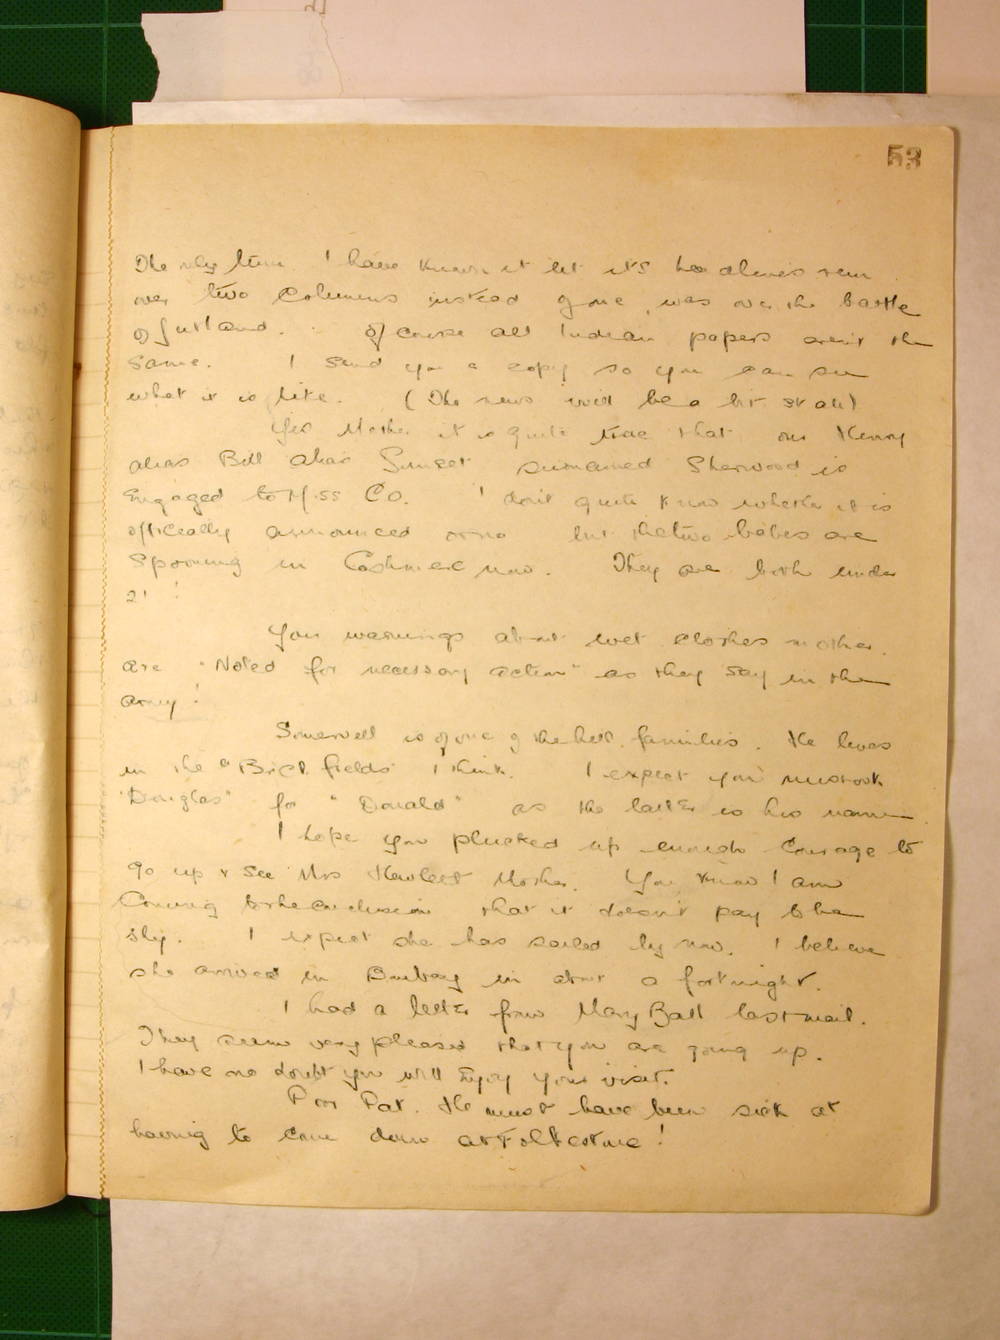 53
The only time I have known it let its headlines run
over two columns instead of one, was over the battle
of Jutland. Of course all Indian papers aren't the
same. I send you a copy so you can see
what it is like. (The news will be a bit stale)
Yes Mother it is quite true that our Kenny
alias Bill alias Sunset surnamed Sherwood is
Engaged to Miss Co. I don't quite know whether it is
officially announced or no but the two babes are
Spooning in Cashmere now. They are both under
21!
Your warnings about wet clothes mother.
are "Noted for necessary action" as they say in the
army!
Somervell is of one of the hill families. He lives
in the "Brick fields" I think. I expect you mistook
"Douglas" for "Donald" as the latter is his name.
I hope you plucked up enough courage to
go up & see Mrs Hewlett Mother. You know I am
Coming to the conclusion that it doesn't pay to be
shy. I expect she has sailed by now. I believe
she arrives in Bombay in about a fortnight.
I had a letter from Mary Ball last mail.
They seem very pleased that you are going up.
I have no doubt you will Enjoy your visit.
Poor Pat. He must have been sick at
having to come down at Folkestone!